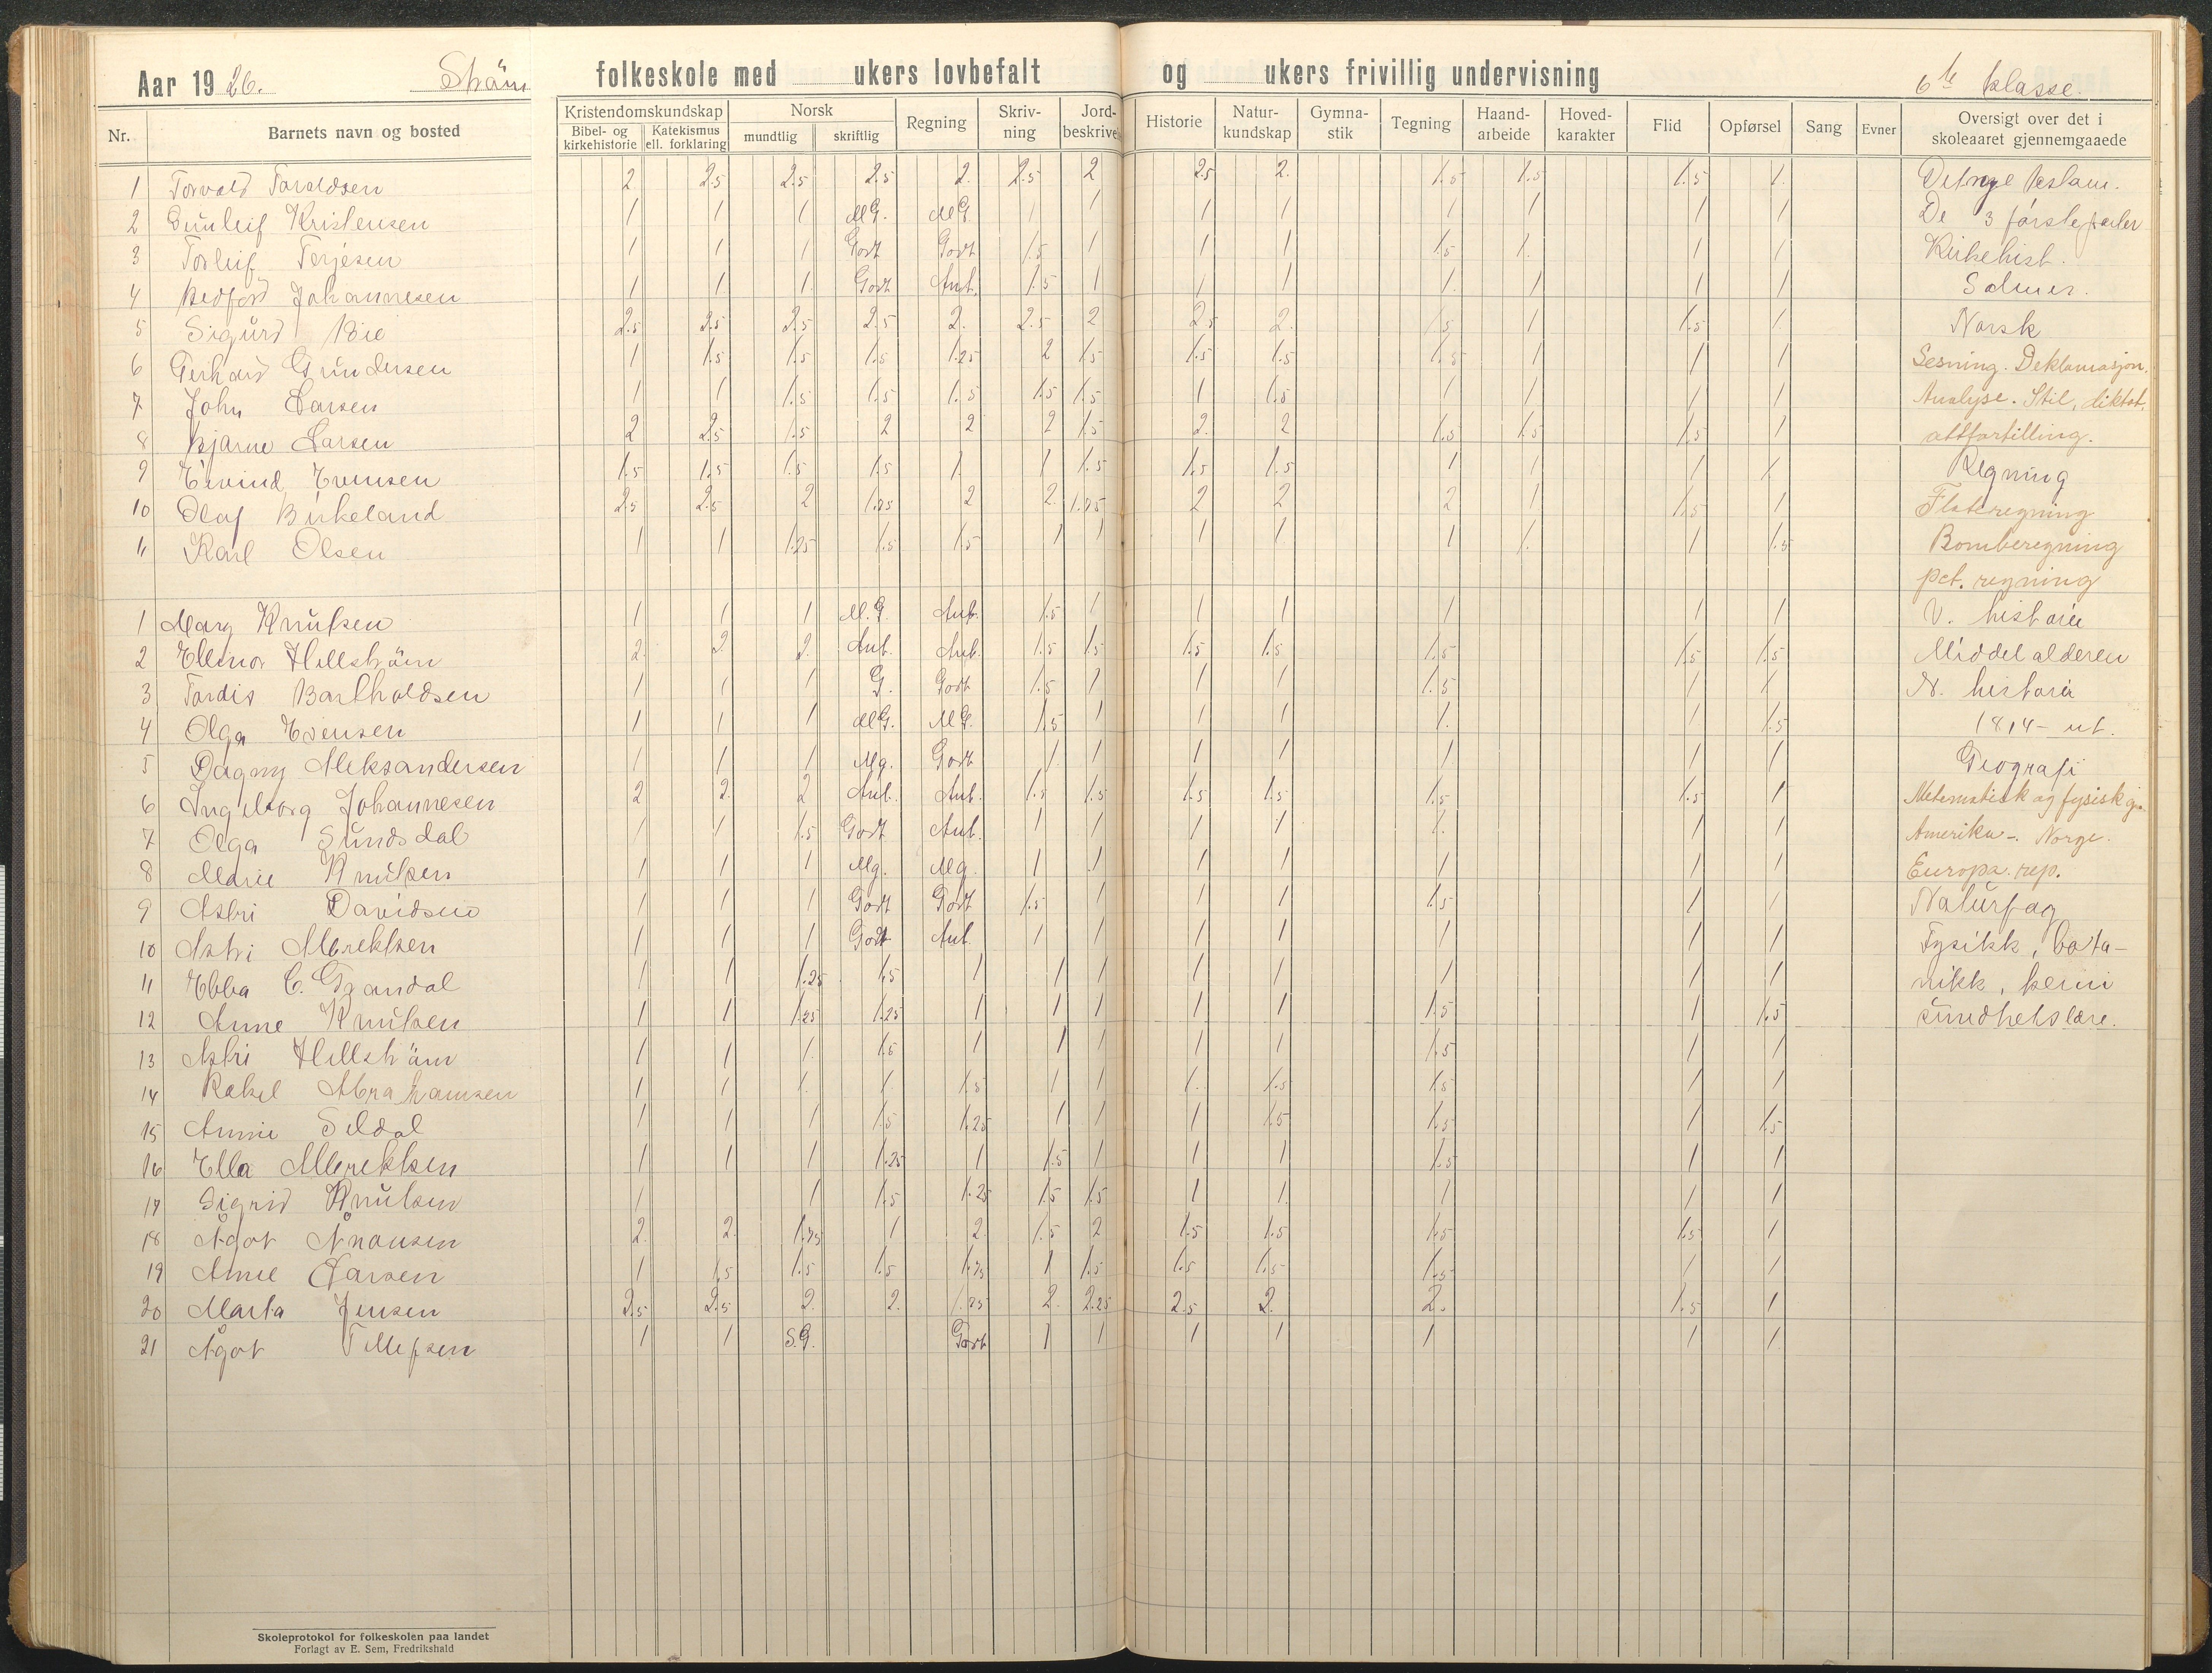 Aar 1926. Sträm folkeskole med ukers lovbefalt og ukers frivillig undervisning 6te klasse.
Nr. Barnets navn og bosted Kristendomskundskap Bibel- og kirkehistorie Katekismus ell. forklaring Norsk mundtlig skriftlig Regning Skriv-ning Jord-beskrivel Historie Natur-kundskap Gymna-stik Tegning Haand-arbeide Hoved-karakter Flid Opførsel Sang Evner Oversigt over det i skoleaaret gjennemgaaede
1 Torvald Taraldsen 2 2.5 2.5 2.5 2. 2.5 2 2.5 2. 1.5 1.5 1.5 1. Det nye testam.
2 Gunleif Kristensen 1 1 1 MG. MG 1 1 1 1 1 1 1 1 De 3 første parter
3 Torleif Terjesen 1 1 1 Godt Godt 1.5 1 1 1 1.5 1. 1 1 Kirkehist.
4 Bedford Johannesen 1 1 1. Godt Ant. 1.5 1 1 1 1 1 1 1 Salmer.
5 Sigurd Bie 2.5 2.5 2.5 2.5 2. 2.5 2 2.5 2. 1.5 1 1.5 1 Norsk
6 Gerhard Gundersen 1 1.5 1.5 1.5 1.25 2 1.5 1.5 1.5 1.5 1 1 1 Lesning. Deklamasjon.
7 John Larsen 1 1 1.5 1.5 1.5 1.5 1.5 1 1.5 1 1 1 1 Analyse. Stil, diktat,
8 Bjarne Larsen 2 2.5 1.5 2 2 2 1.5 2. 2 1.5 1.5 1.5 1 attfortelling.
9 Eivind Evensen 1.5 1.5 1.5 1.5 1 1 1.5 1.5 1.5 1 1 1 1. Regning
10 Olaf Birkeland 2.5 2.5 2 1.75 2 2. 1.75 2 2 2 1 1.5 1 Flateregning
11 Karl Olsen 1 1 1.25 1.5 1.5 1 1 1 1 1 1. 1 1.5 Bomberegning
pct. regning
1 Mary Knutsen 1 1 1 M.G. Ant. 1.5 1 1 1 1 1 1 V. historie
2 Ellinor Hellsträm 2. 2. 2. Ant. Ant. 1.5 1.5 1.5 1.5 1.5 1.5 1.5 Middelalderen
3 Tordis Bartholdsen 1 1 1 G. Godt 1.5 1 1 1 1.5 1 1 N. historie
4 Olga Evensen 1 1 1 MG. MG. 1.5 1 1 1 1. 1 1.5 1814 - ut.
5 Dagny Aleksandersen 1 1 1 Mg. Godt 1. 1 1 1 1 1 1 Geografi
6 Ingeborg Johannesen 2 2. 2 Ant. Ant. 1.5 1.5 1.5 1.5 1.5 1.5 1 Matematisk og fysisk g.
7 Olga Sundsdal 1 1 1.5 Godt Ant. 1 1 1 1 1. 1 1 Amerika - Norge.
8 Marie Knutsen 1 1 1 Mg. Mg. 1 1 1 1 1 1 1 Europa. rep.
9 Astri Davidsen 1 1 1 Godt Godt 1.5 1 1 1 1.5 1 1 Naturfag
10 Astri Albrektsen 1 1 1 Godt Ant. 1 1 1 1 1 1 1 Fysikk, bota-
11 Ebba C. Grandal 1 1 1.25 1.5 1 1 1 1 1 1 1 1 nikk, kemi
12 Anne Knutsen 1 1 1.25 1.25 1 1 1 1 1 1.5 1 1.5 sundhetslære.
13 Astri Hellsträm 1 1 1. 1.5 1 1 1 1 1 1.5 1 1
14 Rakel Abrahamsen 1 1 1. 1. 1.5 1 1 1. 1.5 1.5 1 1
15 Annie Seldal 1 1 1 1.5 1.25 1 1 1 1.5 1.5 1 1.5
16 Ella Albrektsen 1 1 1 1.25 1 1.5 1 1 1 1.5 1 1
17 Sigrid Knutsen 1 1 1.5 1.25 1.5 1.5 1 1. 1 1 1
18 Ågot Knausen 2. 2. 1.75 1 2. 1.5 2 1.5 1.5 1.5 1.5 1
19 Anne Larsen 1 1.5 1.5 1.5 1.75 1 1.5 1.5 1.5 1.5 1 1
20 Marta Jensen 2.5 2.5 2. 2. 1.25 2. 2.25 2.5 2. 2. 1.5 1
21 Ågot Tellefsen 1 1 S.G. Godt 1 1 1 1 1 1 1
Skoleprotokol for folkeskolen paa landet
Forlagt av E. Sem, Fredrikshald